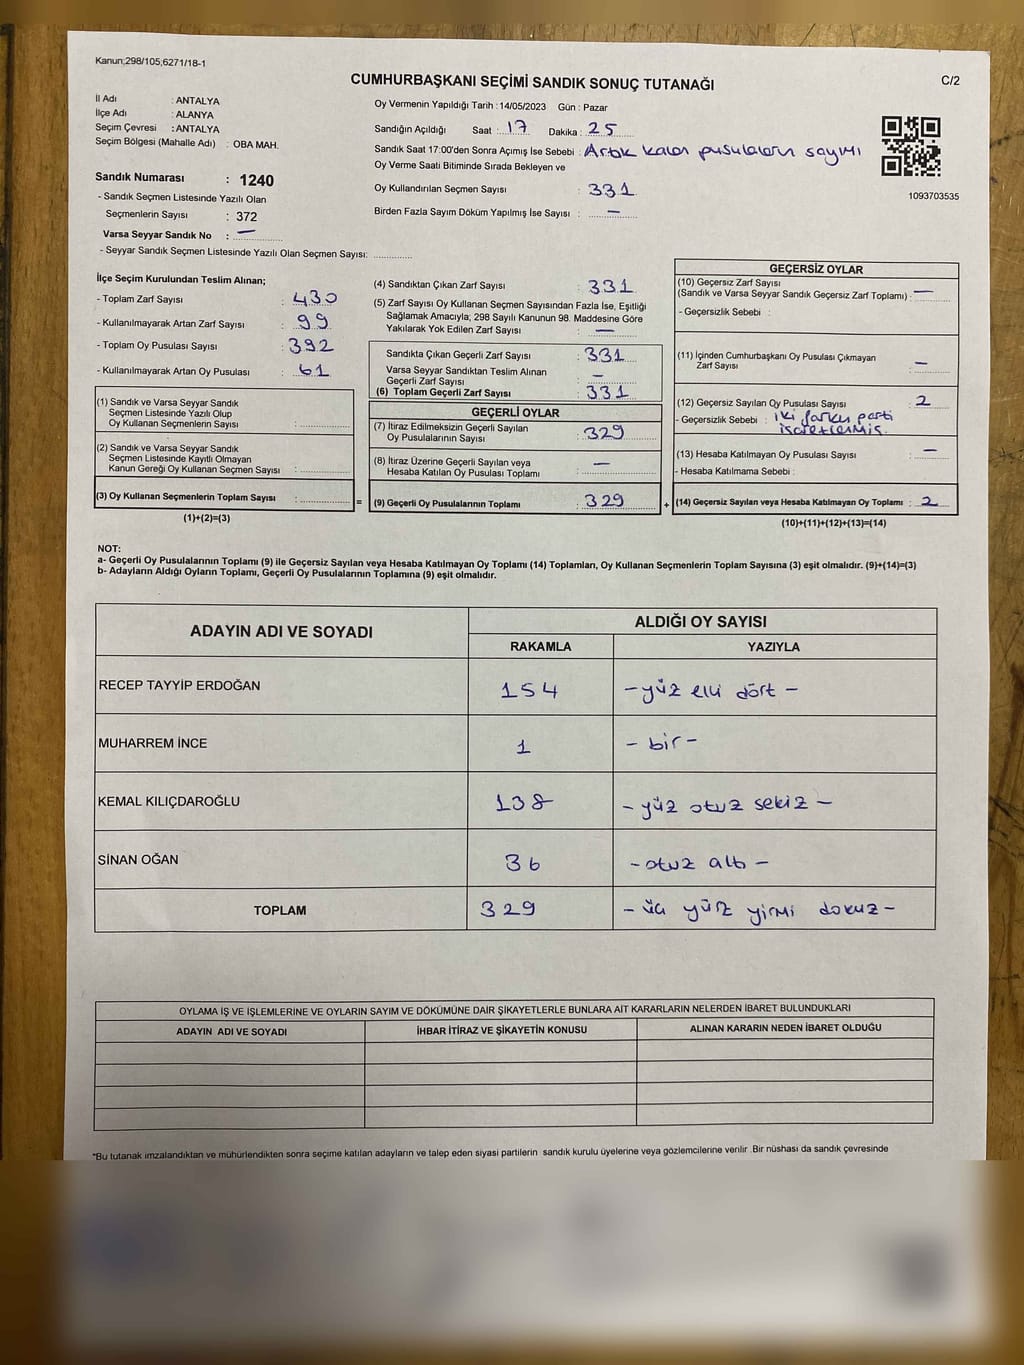 Kanun;298/105;6271/18-1
C/2
CUMHURBAŞKANI SEÇİMİ SANDIK SONUÇ TUTANAĞI
İl Adı : ANTALYA
İlçe Adı : ALANYA
Seçim Çevresi : ANTALYA
Seçim Bölgesi (Mahalle Adı) : OBA MAH.
Sandık Numarası : 1240
- Sandık Seçmen Listesinde Yazılı Olan
Seçmenlerin Sayısı : 372
Varsa Seyyar Sandık No : —
- Seyyar Sandık Seçmen Listesinde Yazılı Olan Seçmen Sayısı:
Oy Vermenin Yapıldığı Tarih : 14/05/2023 Gün : Pazar
Sandığın Açıldığı Saat : 17 Dakika : 25
Sandık Saat 17:00'den Sonra Açımış İse Sebebi : Artık kalan pusulaların sayımı
Oy Verme Saati Bitiminde Sırada Bekleyen ve
Oy Kullandırılan Seçmen Sayısı : 331
Birden Fazla Sayım Döküm Yapılmış İse Sayısı : —
1093703535
İlçe Seçim Kurulundan Teslim Alınan;
- Toplam Zarf Sayısı : 430
- Kullanılmayarak Artan Zarf Sayısı : 99
- Toplam Oy Pusulası Sayısı : 392
- Kullanılmayarak Artan Oy Pusulası : 61
(1) Sandık ve Varsa Seyyar Sandık
Seçmen Listesinde Yazılı Olup
Oy Kullanan Seçmenlerin Sayısı :
(2) Sandık ve Varsa Seyyar Sandık
Seçmen Listesinde Kayıtlı Olmayan
Kanun Gereği Oy Kullanan Seçmen Sayısı :
(3) Oy Kullanan Seçmenlerin Toplam Sayısı : =
(1)+(2)=(3)
(4) Sandıktan Çıkan Zarf Sayısı : 331
(5) Zarf Sayısı Oy Kullanan Seçmen Sayısından Fazla İse, Eşitliği
Sağlamak Amacıyla; 298 Sayılı Kanunun 98. Maddesine Göre
Yakılarak Yok Edilen Zarf Sayısı : —
Sandıkta Çıkan Geçerli Zarf Sayısı : 331
Varsa Seyyar Sandıktan Teslim Alınan
Geçerli Zarf Sayısı : —
(6) Toplam Geçerli Zarf Sayısı : 331
GEÇERLİ OYLAR
(7) İtiraz Edilmeksizin Geçerli Sayılan
Oy Pusulalarının Sayısı : 329
(8) İtiraz Üzerine Geçerli Sayılan veya
Hesaba Katılan Oy Pusulası Toplamı : —
(9) Geçerli Oy Pusulalarının Toplamı : 329 +
GEÇERSİZ OYLAR
(10) Geçersiz Zarf Sayısı
(Sandık ve Varsa Seyyar Sandık Geçersiz Zarf Toplamı) : —
- Geçersizlik Sebebi :
(11) İçinden Cumhurbaşkanı Oy Pusulası Çıkmayan
Zarf Sayısı : —
(12) Geçersiz Sayılan Oy Pusulası Sayısı : 2
- Geçersizlik Sebebi : iki farklı parti
işaretlenmiş.
(13) Hesaba Katılmayan Oy Pusulası Sayısı : —
- Hesaba Katılmama Sebebi :
(14) Geçersiz Sayılan veya Hesaba Katılmayan Oy Toplamı : 2
(10)+(11)+(12)+(13)=(14)
NOT:
a- Geçerli Oy Pusulalarının Toplamı (9) ile Geçersiz Sayılan veya Hesaba Katılmayan Oy Toplamı (14) Toplamları, Oy Kullanan Seçmenlerin Toplam Sayısına (3) eşit olmalıdır. (9)+(14)=(3)
b- Adayların Aldığı Oyların Toplamı, Geçerli Oy Pusulalarının Toplamına (9) eşit olmalıdır.
ADAYIN ADI VE SOYADI
ALDIĞI OY SAYISI
RAKAMLA YAZIYLA
RECEP TAYYİP ERDOĞAN 154 - yüz elli dört -
MUHARREM İNCE 1 - bir -
KEMAL KILIÇDAROĞLU 138 - yüz otuz sekiz -
SİNAN OĞAN 36 - otuz altı -
TOPLAM 329 - üç yüz yirmi dokuz -
OYLAMA İŞ VE İŞLEMLERİNE VE OYLARIN SAYIM VE DÖKÜMÜNE DAİR ŞİKAYETLERLE BUNLARA AİT KARARLARIN NELERDEN İBARET BULUNDUKLARI
ADAYIN ADI VE SOYADI İHBAR İTİRAZ VE ŞİKAYETİN KONUSU ALINAN KARARIN NEDEN İBARET OLDUĞU
*Bu tutanak imzalandıktan ve mühürlendikten sonra seçime katılan adayların ve talep eden siyasi partilerin sandık kurulu üyelerine veya gözlemcilerine verilir .Bir nüshası da sandık çevresinde